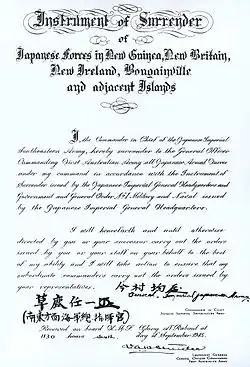 Instrument of Surrender
of
Japanese Forces in New Guinea, New Britain,
New Ireland, Bougainville
and adjacent Islands
I, the Commander in Chief of the Japanese Imperial
Southeastern Army, hereby surrender to the General Officer
Commanding First Australian Army all Japanese Armed Forces
under my command in accordance with the Instrument of
Surrender issued by the Japanese Imperial General Headquarters and
Government and General Order No 1 Military and Naval issued
by the Japanese Imperial General Headquarters.
I will henceforth and until otherwise
directed by you or your successor carry out the orders
issued by you or your staff on your behalf to the best
of my ability and I will take action to ensure that my
subordinate commanders carry out the orders issued by
your representatives.
今村均
General, Imperial Japanese Army
草鹿任一
(南東方面海軍総指揮官)
Commander in Chief
Received on board H.M.S. Glory at Rabaul at
1130 hours 6 September 1945.
Lieutenant General
General Officer Commanding
First Australian Army